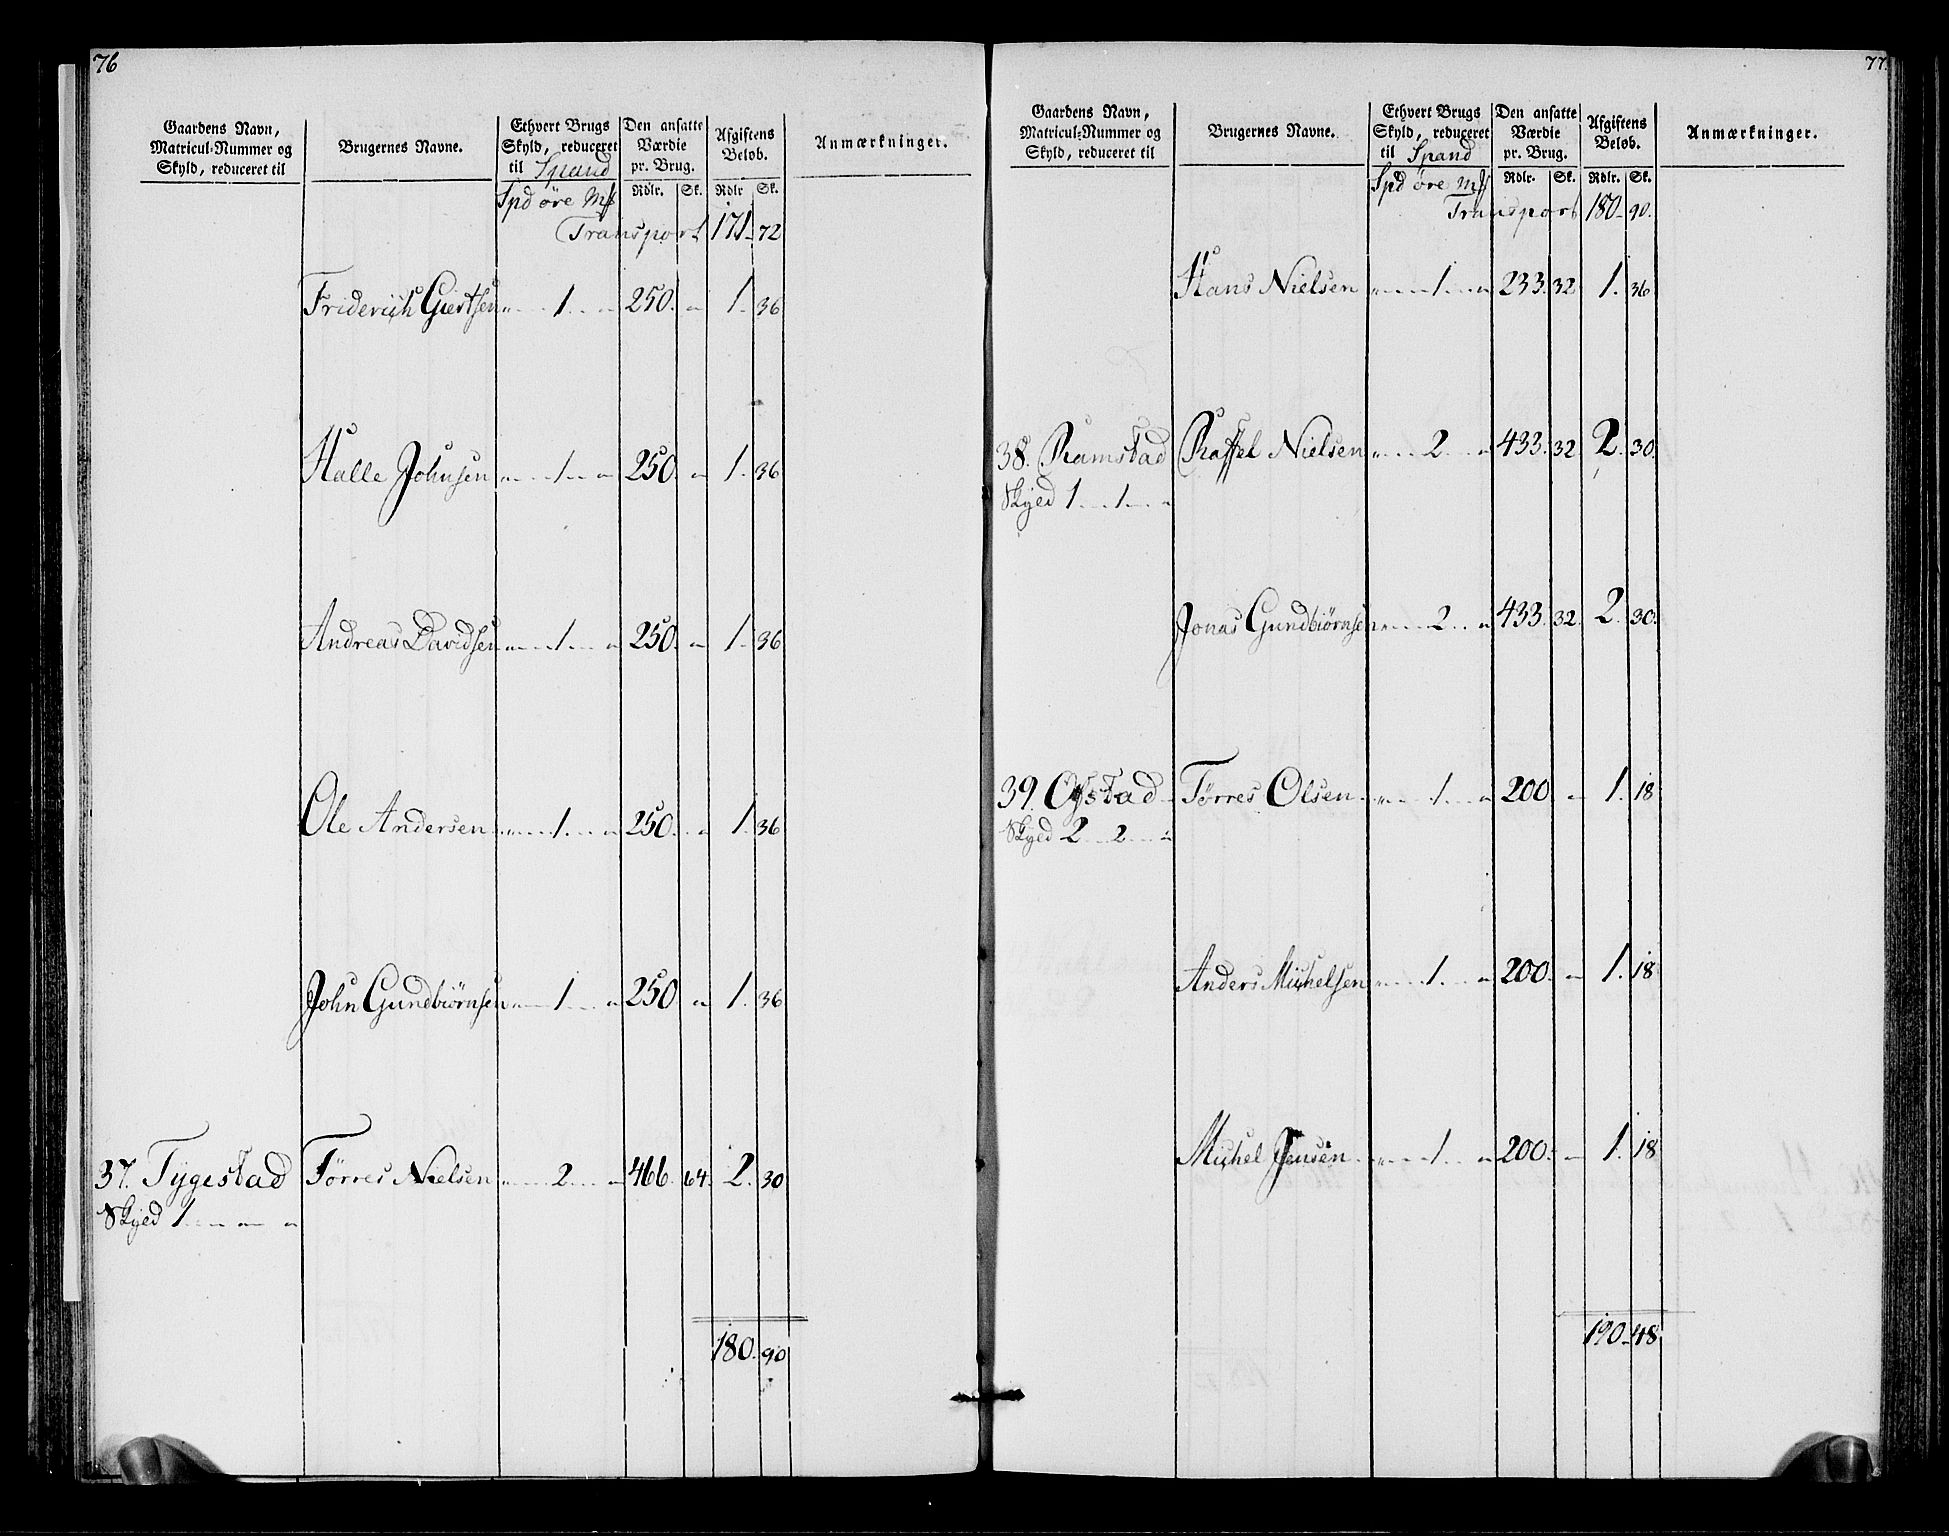 76
Gaardens Navn, Matricul-Nummer og Skyld, reduceret til
Brugernes Navne.
Ethvert Brugs Skyld, reduceret til Spand
Den ansatte Værdie pr. Brug.
Afgiftens Beløb.
Anmærkninger.
Spd øre M# Rdlr. Sk. Rdlr Sk.
Transport 171 72
Friderich Giertsen " 1 " 250. " 1. 36
Halle Johnsen " 1 " 250. " 1. 36
Andreas Davidsen " 1 " 250. " 1. 36
Ole Andersen " 1 " 250. " 1. 36
John Gundbiørnsen " 1 " 250 " 1. 36
37. Tygestad Tørres Nielsen " 2 " 466. 64. 2. 30
Skyld 1 " "
180. 90
77.
Gaardens Navn, Matricul-Nummer og Skyld, reduceret til
Brugernes Navne.
Ethvert Brugs Skyld, reduceret til Spand
Den ansatte Værdie pr. Brug.
Afgiftens Beløb.
Anmærkninger.
Spd øre M# Rdlr. Sk. Rdlr. Sk.
Transport 180 90.
Hans Nielsen " 1 " 233. 32 1. 36
38. Ramstad Raffel Nielsen " 2 " 433. 32 2. 30.
Skyld 1 1 "
Jonas Gundbiørnsen " 2 " 433. 32. 2. 30.
39. Ogstad Tørres Olsen " 1 " 200 " 1. 18
Skyld 2 2 "
Anders Michelsen " 1 " 200. " 1. 18
Michel Jensen " 1 " 200. " 1. 18
190 48